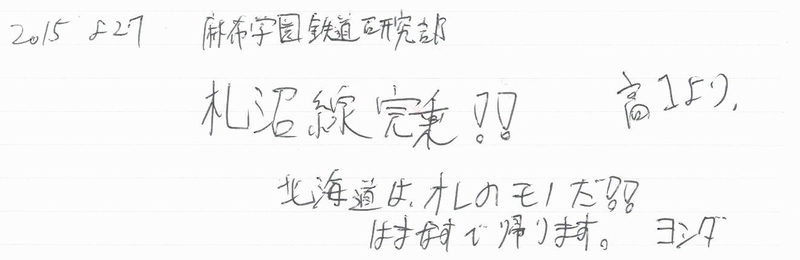 2015 8 27 麻布学園鉄道研究部
札沼線完乗!! 高1より、
北海道は、オレのモノだ!!
はまなすで帰ります。 ヨシダ